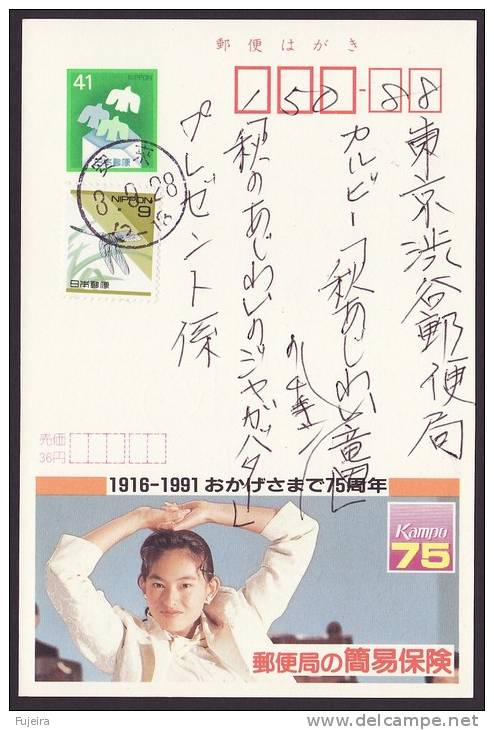 郵便はがき
41
NIPPON
日本郵便
8.8.28
12-18
NIPPON
9
日本郵便
150-88
東京渋谷郵便局
カルビー「秋あじわい
「秋のあじわいのジャガバター」
プレゼント係
売価
36円
1916-1991 おかげさまで75周年
Kampo
75
郵便局の簡易保険
Fujeira
www.delcampe.net